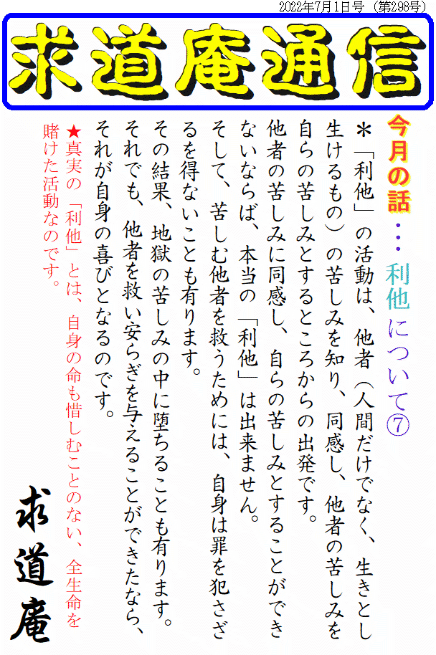 2022年7月1日号（第298号）
求道庵通信
今月の話…利他について⑦
＊「利他」の活動は、他者（人間だけでなく、生きとし
生けるもの）の苦しみを知り、同感し、他者の苦しみを
自らの苦しみとするところからの出発です。
他者の苦しみに同感し、自らの苦しみとすることができ
ないならば、本当の「利他」は出来ません。
そして、苦しむ他者を救うためには、自身は罪を犯さざ
るを得ないことも有ります。
その結果、地獄の苦しみの中に堕ちることも有ります。
それでも、他者を救い安らぎを与えることができたなら、
それが自身の喜びとなるのです。
★真実の「利他」とは、自身の命も惜しむことのない、全生命を
賭けた活動なのです。
求道庵